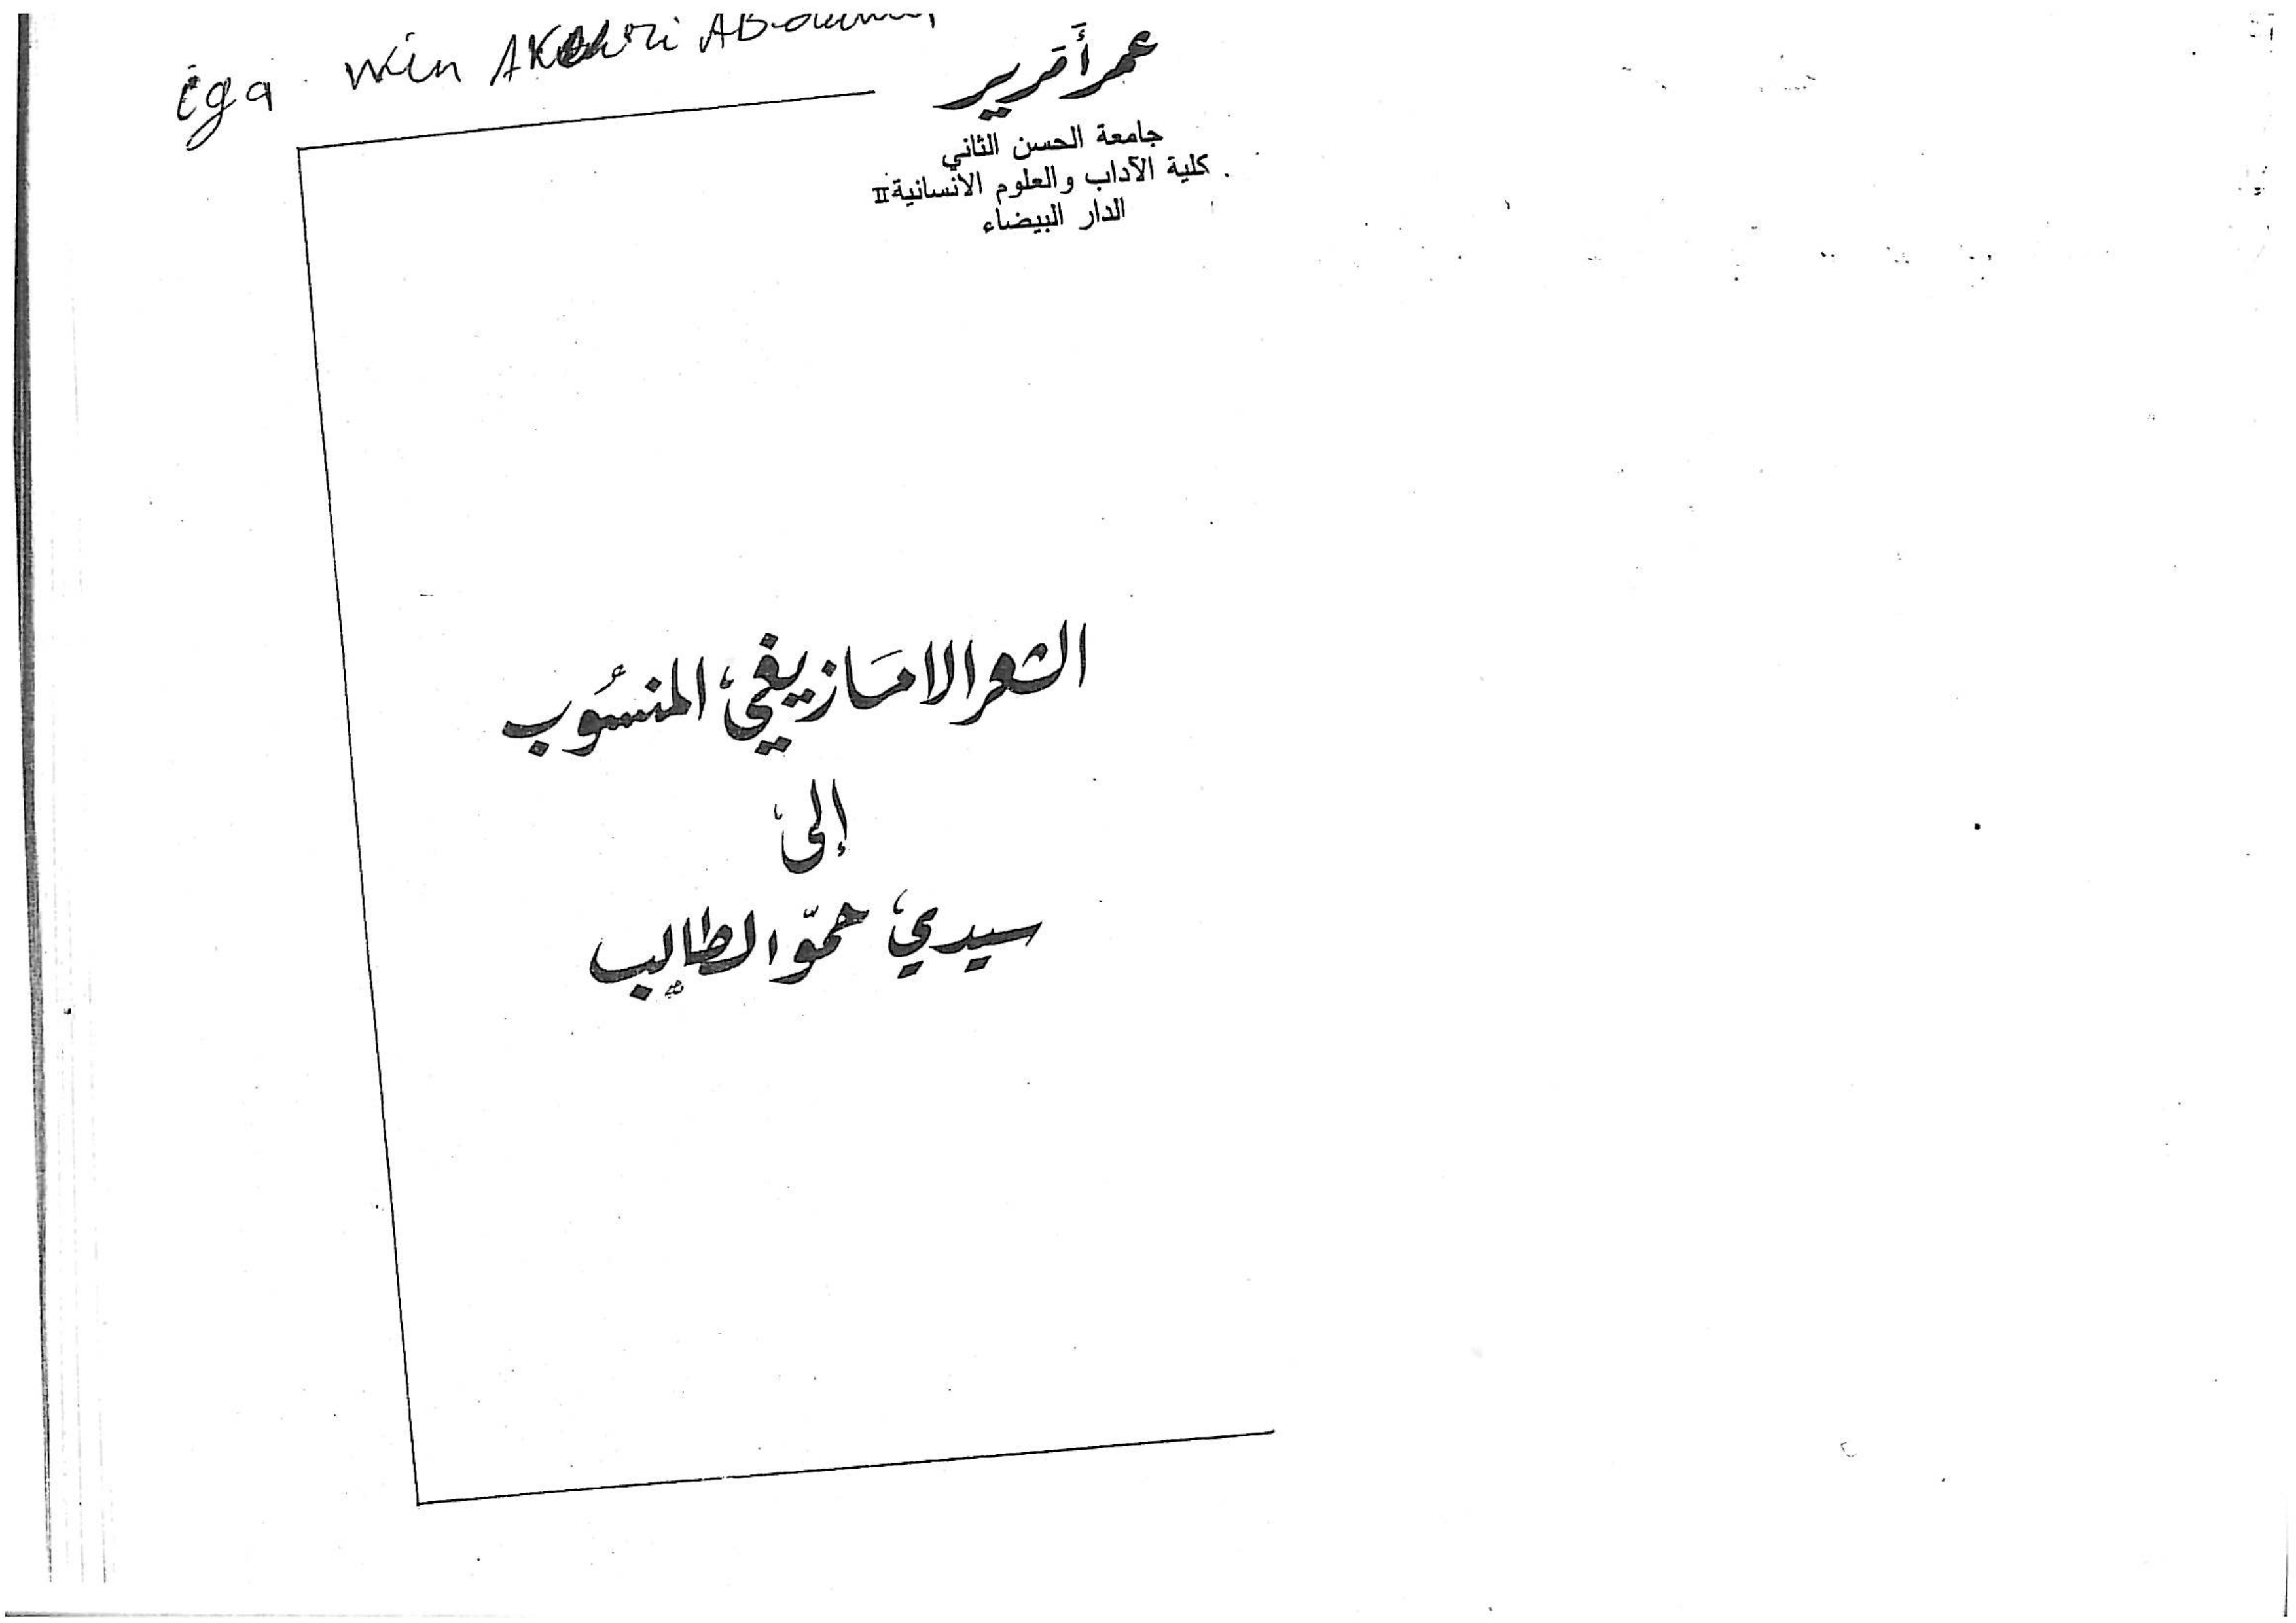 iga win
عمر أمرير
جامعة الحسن الثاني
كلية الآداب والعلوم الانسانية II
الدار البيضاء
الشعر الامازيغي المنسوب
إلى
سيدي حمّو الطالب